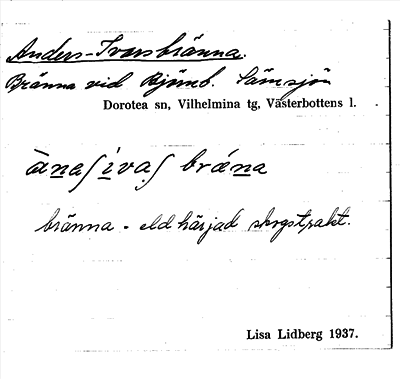 Anders-Ivarsbränna.
Bränna vid Björnb. Sämsjön
Dorotea sn, Vilhelmina tg, Västerbottens l.
àṉaʃi̱vaʃ brǽṉa
bränna - eldhärjad skogstrakt.
Lisa Lidberg 1937.